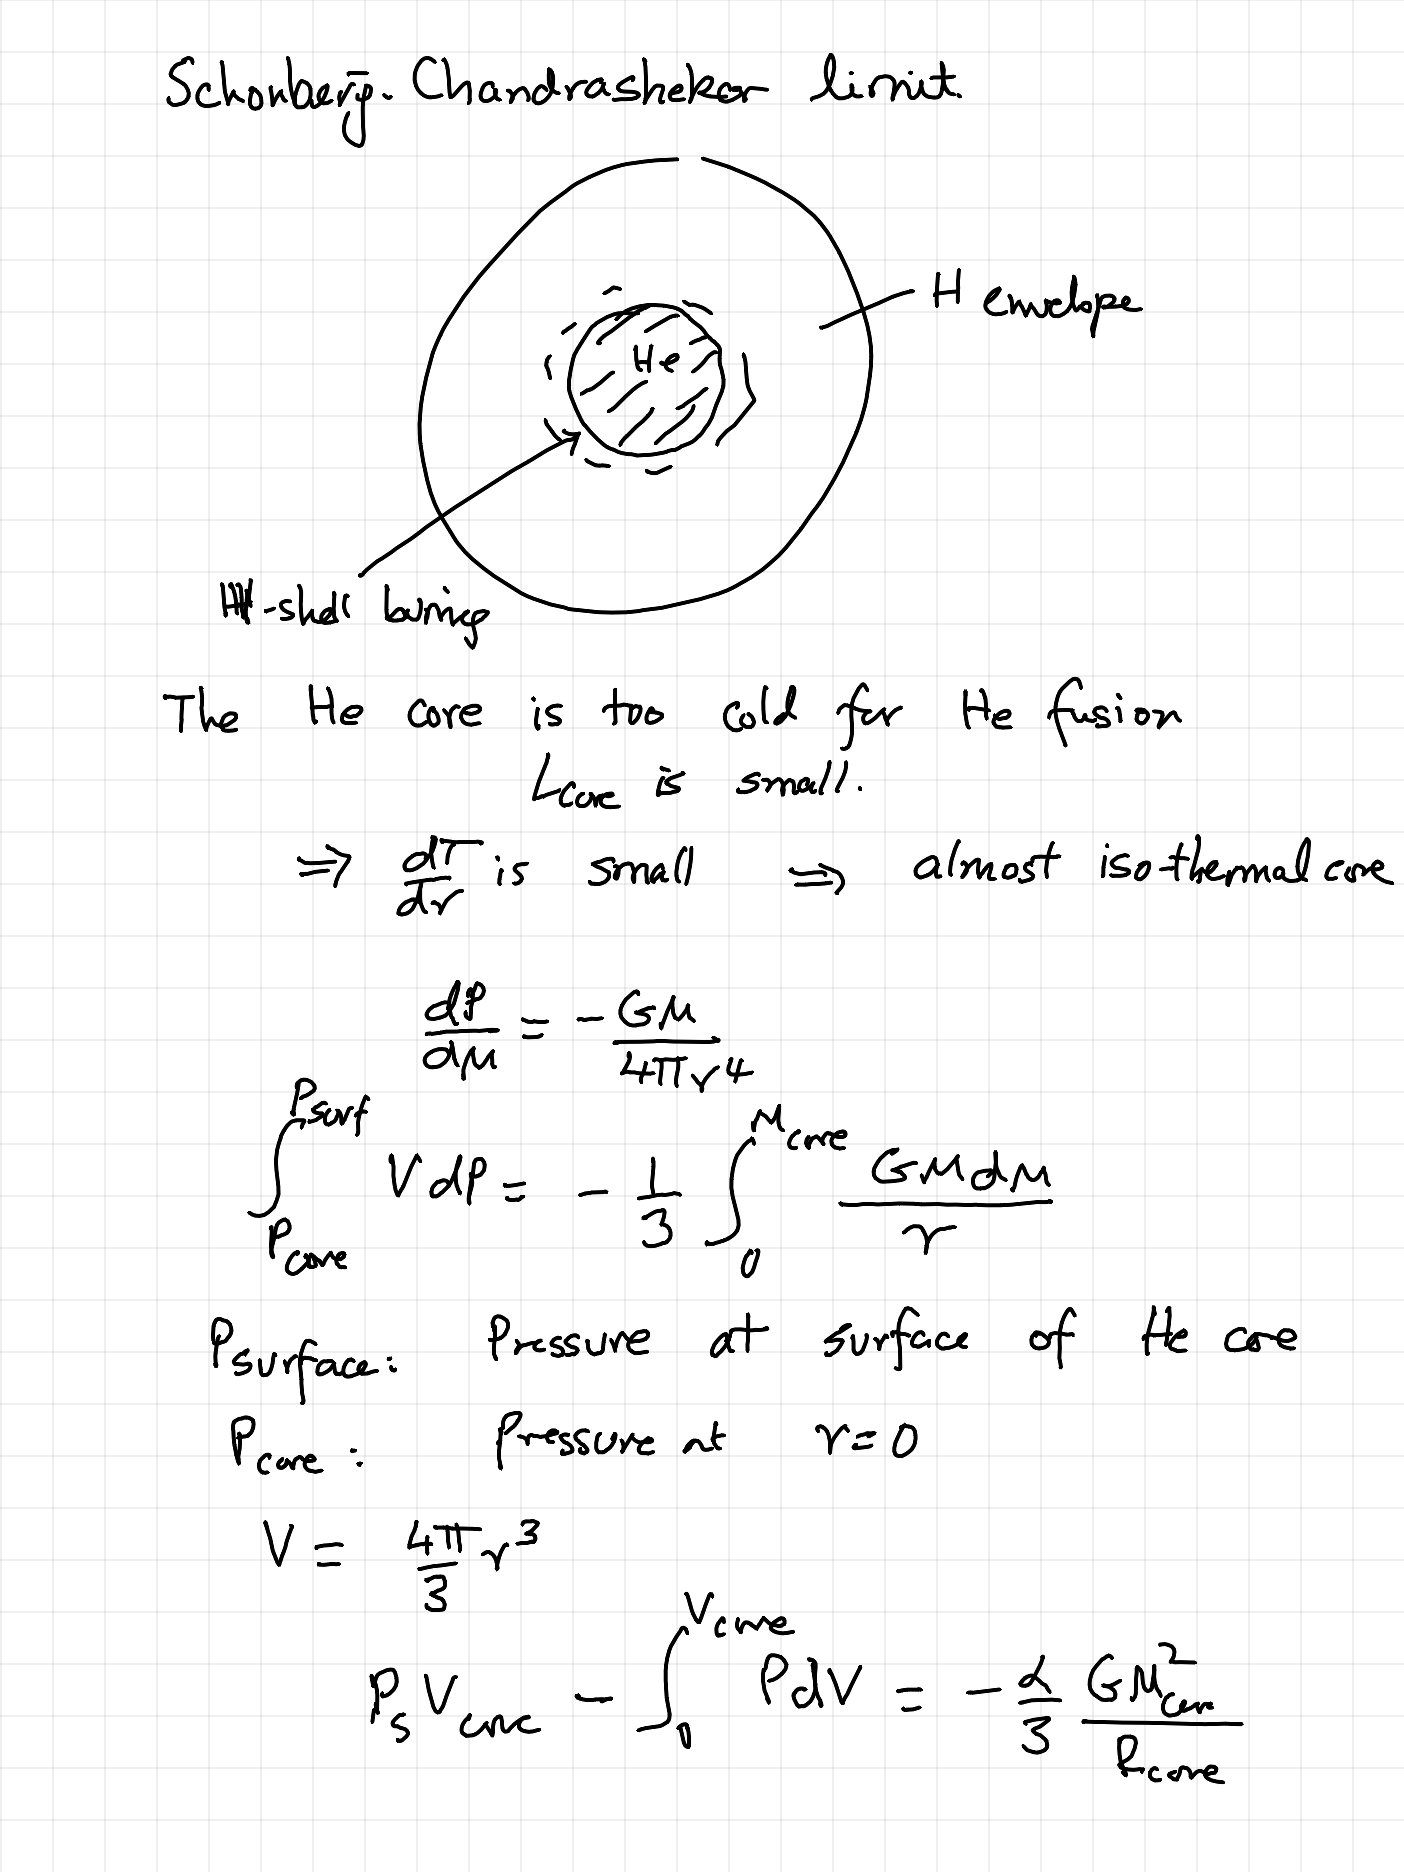 Schonberg-Chandrashekar limit.
H envelope
He
H-shell burning
The He core is too cold for He fusion
L_core is small.
⇒ dT/dr is small ⇒ almost isothermal core
dP/dM = - GM / 4πr^4
∫_{P_core}^{P_surf} V dP = - 1/3 ∫_0^{M_core} GMdM / r
P_surface: Pressure at surface of He core
P_core: Pressure at r=0
V = 4π/3 r^3
P_s V_core - ∫_0^{V_core} PdV = - α/3 GM_core^2 / R_core